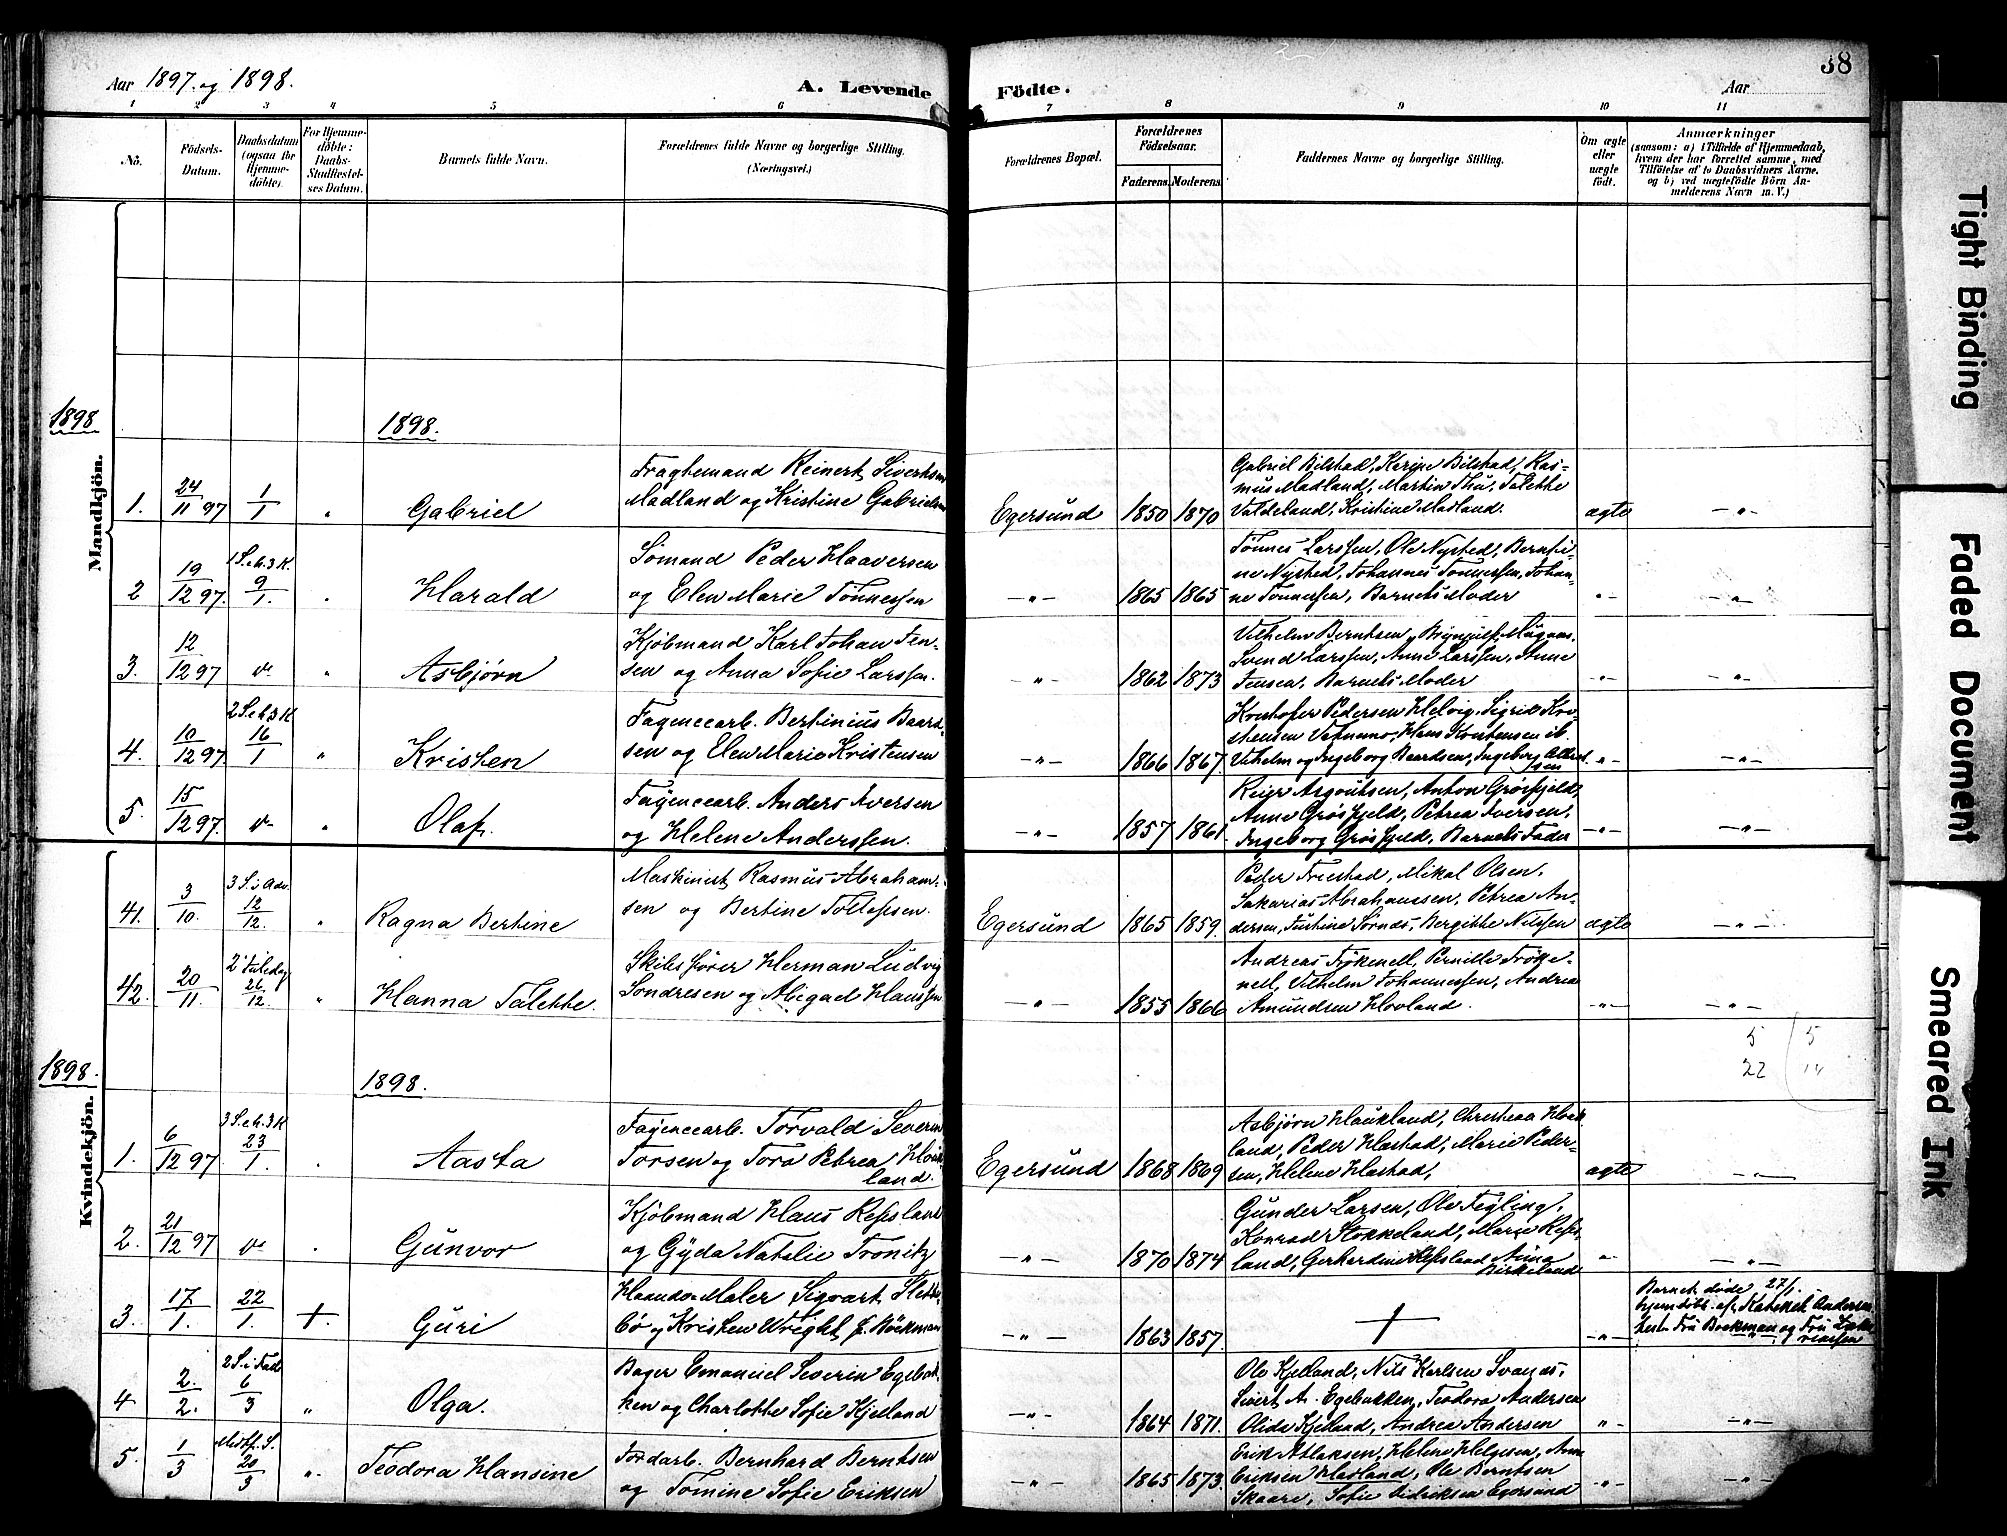 Aar 1897. og 1898.
A. Levende
Födte.
Aar
38
1 2 3 4 5 6 7 8 9 10 11
No.
Födsels-
Datum.
Daabsdatum
(ogsaa for
Hjemme-
döbte).
For Hjemme-
döbte:
Daabs-
Stadfæstel-
ses Datum.
Barnets fulde Navn.
Forældrenes fulde Navne og borgerlige Stilling.
(Næringsvei.)
Forældrenes Bopæl.
Forældrenes
Födselsaar.
Faderens. Moderens.
Faddernes Navne og borgerlige Stilling.
Om ægte
eller
uægte
födt.
Anmærkninger
(saasom: a) i Tilfælde af Hjemmedaab,
hvem der har forrettet samme, med
Tilföielse af to Daabsvidners Navne,
og b) ved uægtefödte Börn An-
melderens Navn m. V.)
Mandkjön.
1898
1898.
1. 24/11 97 1/1 " Gabriel
Fragtemand Reinert Sivertsen
Madland og Kristine Gabrielsen
Egersund 1850 1870
Gabriel Bilstad, Karine Bilstad, Ras-
mus Madland, Martin Thu, Talette
Valdeland, Kristine Madland.
ægte —"—
2 19/12 97. 1 S. e. h. 3 K. 9/1. " Harald
Sömand Peder Haaversen
og Elen Marie Tönnessen
—"— 1865 1865
Tönnes Larssen, Ole Nysted, Bernti-
ne Nysted, Johannes Tönnessen, Johan-
ne Tönnessen, Barnets Moder
"— —"—
3. 12/12 97 " Asbjørn
Kjöbmand Karl Johan Jen-
sen og Anna Sofie Larssen.
—"— 1862 1873
Vilhelm Berntsen, Magnus.
Svend Larssen, Anne Larssen, Anne
Jensen, Barnets Moder
"— —"—
4. 10/12 97 2 S. e. h. 3 K 16/1 " Kristen
Fagencearb. Bertinius Baard-
sen og Elen Marie Kristensen
—"— 1866 1867.
Kristofer Pedersen Helvig, Sigrid Kri-
stensen Vatnamo, Hans Kristensen ib.
Vilhelm og Ingeborg Baardsen, Ingeborg
"— —"—
5. 15/12 97. " Olaf.
Fagencearb. Anders Iversen
og Helene Anderssen.
—"— 1857 1861.
Reier Asgautsen, Anton Grösfjeld,
Anne Grösfjeld, Petrea Iversen,
Ingeborg Grösfjeld, Barnets Fader
—"— —"—
41. 3/10. 3 S. i Adv. 12/12. " Ragna Bertine
Maskinist Rasmus Abraham-
sen og Bertine Tollefsen.
Egersund 1865 1859.
Peder Friestad, Mikal Olsen,
Sakarias Abrahamsen, Petrea An-
dersen, Justine Sörnds, Bergitte Nilssen
ægte —"—
42. 20/11. 2 Juledag 26/12. " Hanna Talette.
Skibsförer Herman Ludvig
Sondresen og Abigael Hanssen
—"— 1855 1866
Andreas Frökenell, Pernille Fröke-
nell, Vilhelm Johannessen, Andrea
Amundsen Hovland.
"— —"—
5 5
22
Kvindekjön.
1898.
1898.
1. 6/12 97 3 S. e. h. 3 K 23/1. " Aasta
Fagencearb. Torvald Severin
Torsen og Tora Petrea Hauk-
land.
Egersund 1868 1869
Asbjørn Haukland, Christiana Hauk-
land, Peder Hastad, Marie Peder-
sen, Helene Hastad,
ægte —"—
2. 21/12 97 " Gunvor
Kjöbmand Hans Refsland
og Gyda Natalie Tronitz
—"— 1870 1874
Gunder Larsen, Ole Fegling,
Konrad Stokkeland, Marie Refs-
land, Gerhardine Refsland Anna
Birkeland
"— —"—
3. 17/1. 22/1. +. Guri
Haandv. Maler Sigvart Slette-
bö og Kristen Wright f. Böckman
—"— 1863 1857.
+
—"—
Barnet döde 27/1.
hjemdöbt af Kateket Andersen
test. Fru Bockman og Fru
4 2./2. 2 S. i Faste 6/3 " Olga.
Bager Emanuel Severin Egebak-
ken og Charlotte Sofie Kjelland
—"— 1864 1871.
Ole Kjelland, Nils Karlsen Svanes,
Sivert A. Egebakken, Teodora Andersen
Olida Kjelland, Andrea Andersen
"— —"—
5. 1/3 Midtf. S. 20/3 ". Teodora Hansine
Jordarb. Bernhard Berntsen
og Tomine Sofie Eriksen
—"— 1865 1873.
Erik Atlaksen, Helene Helgesen, Anne
Eriksen Hadland, Ole Berntsen
Skaare, Sofie Didriksen Egersund
"— —"—
Tight Binding
Faded Document
Smeared Ink